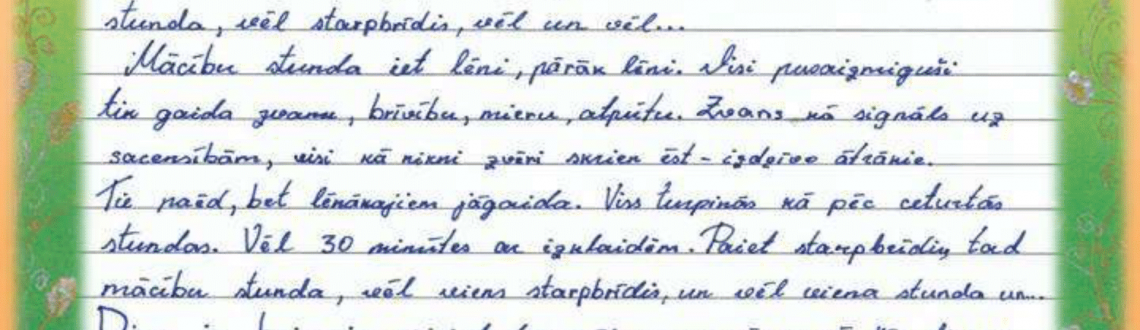 stunda, vēl starpbrīdis, vēl un vēl...
Mācību stunda iet lēni, pārāk lēni. Visi pusaizmiguši
tik gaida zvanu, brīvību, mieru, atpūtu. Zvans kā signāls uz
sacensībām, visi kā nikni zvēri skrien ēst - izdzīvo ātrākie.
Tie paēd, bet lēnākajiem jāgaida. Viss turpinās kā pēc ceturtās
stundas. Vēl 30 minūtes ar izklaidēm. Paiet starpbrīdis, tad
mācību stunda, vēl viens starpbrīdis, un vēl viena stunda un...